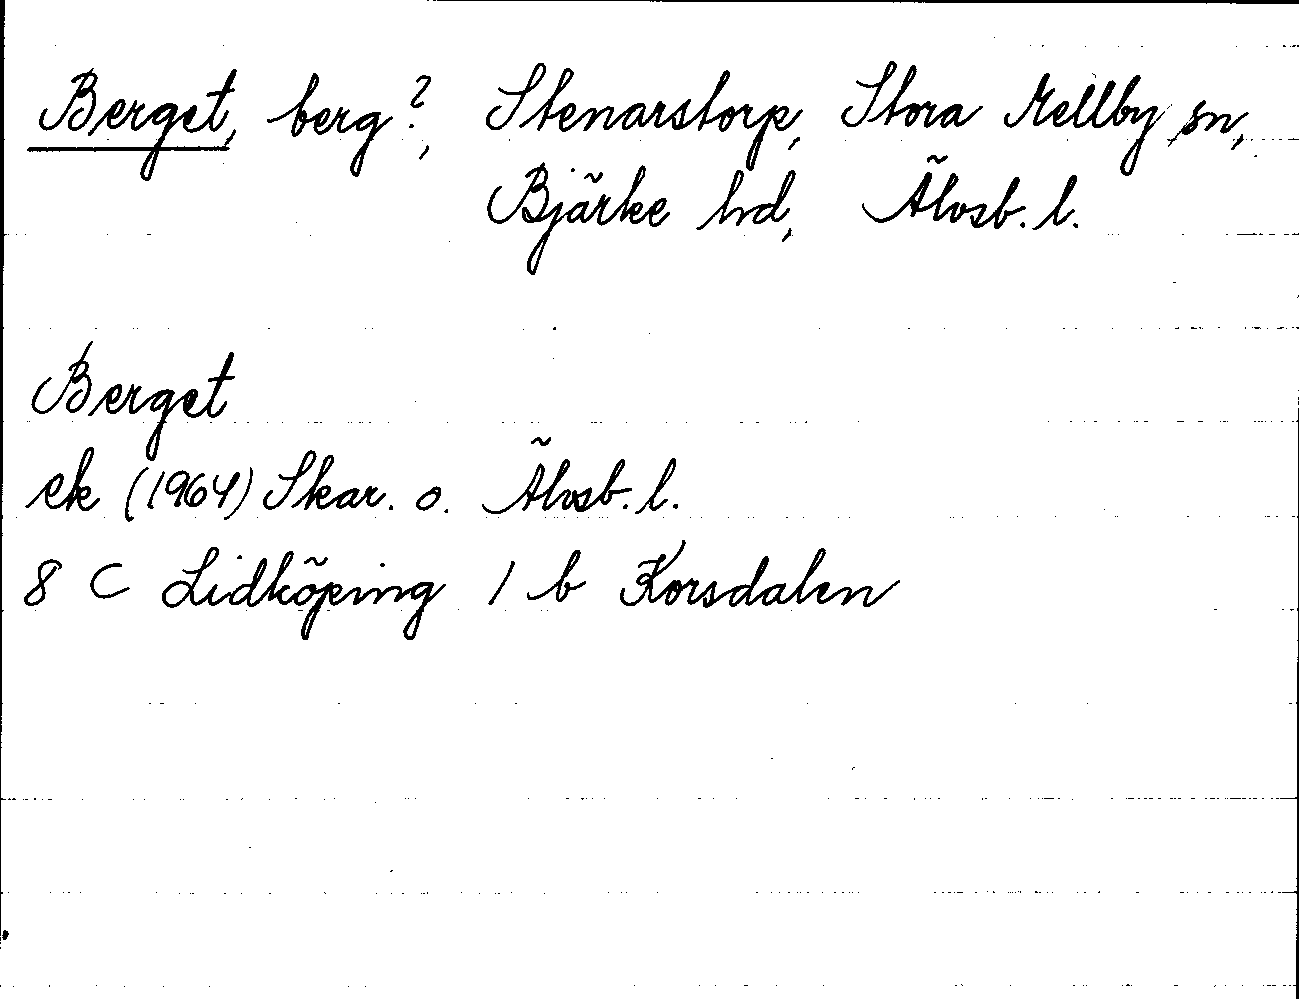 Berget, berg?, Stenarstorp, Stora Mellby sn,
Bjärke hd, Älvsb. l.
Berget
ek (1964) Skar. o. Älvsb. l.
8 C Lidköping 1 b Korsdalen